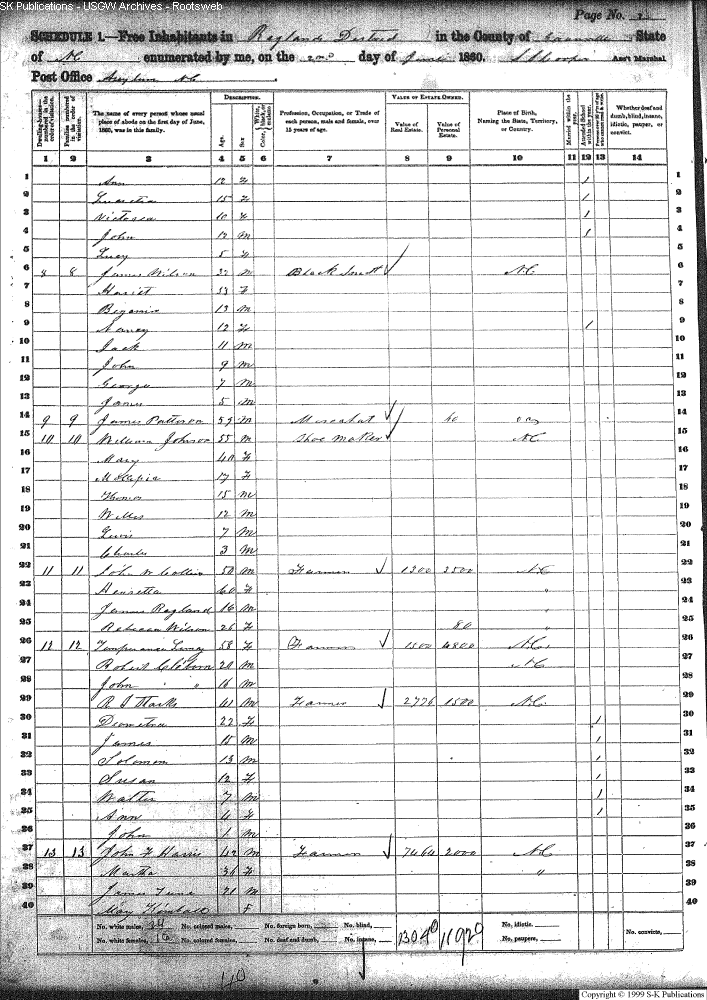 SK Publications - USGW Archives - Rootsweb
Page No.
SCHEDULE 1.—Free Inhabitants in Ragland District in the County of Granville State
of NC enumerated by me, on the 2nd day of June 1860. Ass't Marshal
Post Office NC
DESCRIPTION. VALUE OF ESTATE OWNED.
Dwelling-houses—numbered in the order of visitation.
Families numbered in the order of visitation.
The name of every person whose usual place of abode on the first day of June, 1860, was in this family.
Age.
Sex
Color, White, black, or mulatto
Profession, Occupation, or Trade of each person, male and female, over 15 years of age.
Value of Real Estate.
Value of Personal Estate.
Place of Birth, Naming the State, Territory, or Country.
Married within the year.
Attended School within the year.
Whether deaf and dumb, blind, insane, idiotic, pauper, or convict.
1 2 3 4 5 6 7 8 9 10 11 12 13 14
1 Ann 12 F 1 1
2 Lucretia 15 F 1 2
3 Victoria 10 F 1 3
4 John 12 M 1 4
5 Lucy 5 F 5
6 8 8 James Wilson 32 M Black Smith NC 6
7 Hariet 33 F 7
8 Benjamin 13 M 8
9 Nancy 12 F 1 9
10 Jack 11 M 10
11 John 9 M 11
12 George 7 M 12
13 James 5 M 13
14 9 9 James Patterson 59 M 14
15 10 10 William Johnson 55 M Shoe Maker NC 15
16 Mary 40 F 16
17 17 F 17
18 Thomas 15 M 18
19 Willis 12 M 19
20 Lewis 7 M 20
21 Charles 3 M 21
22 11 11 John W Collins 50 M Farmer 1300 3500 NC 22
23 Henretta 60 F " 23
24 James Ragland 16 M " 24
25 Rebecca Wilson 26 F 80 " 25
26 12 12 58 F Farmer 1500 4800 NC 26
27 Robert 20 M NC 27
28 John " 16 M 28
29 R S Marks 41 M Farmer 2776 1500 NC 29
30 22 F 1 30
31 James 15 M 1 31
32 Solomon 13 M 1 32
33 Susan 12 F 1 33
34 Walter 7 M 1 34
35 Ann 4 F 1 35
36 John 1 M 36
37 13 13 John F Harris 42 M Farmer 7464 2000 NC 37
38 Martha 36 F " 38
39 James 21 M 39
40 May Kimball F 40
No. white males, 24 No. colored males, No. foreign born, No. blind, 13040 11920 No. idiotic,
No. white females, 16 No. colored females, No. deaf and dumb, No. insane, No. paupers, No. convicts,
40
Copyright © 1999 S-K Publications